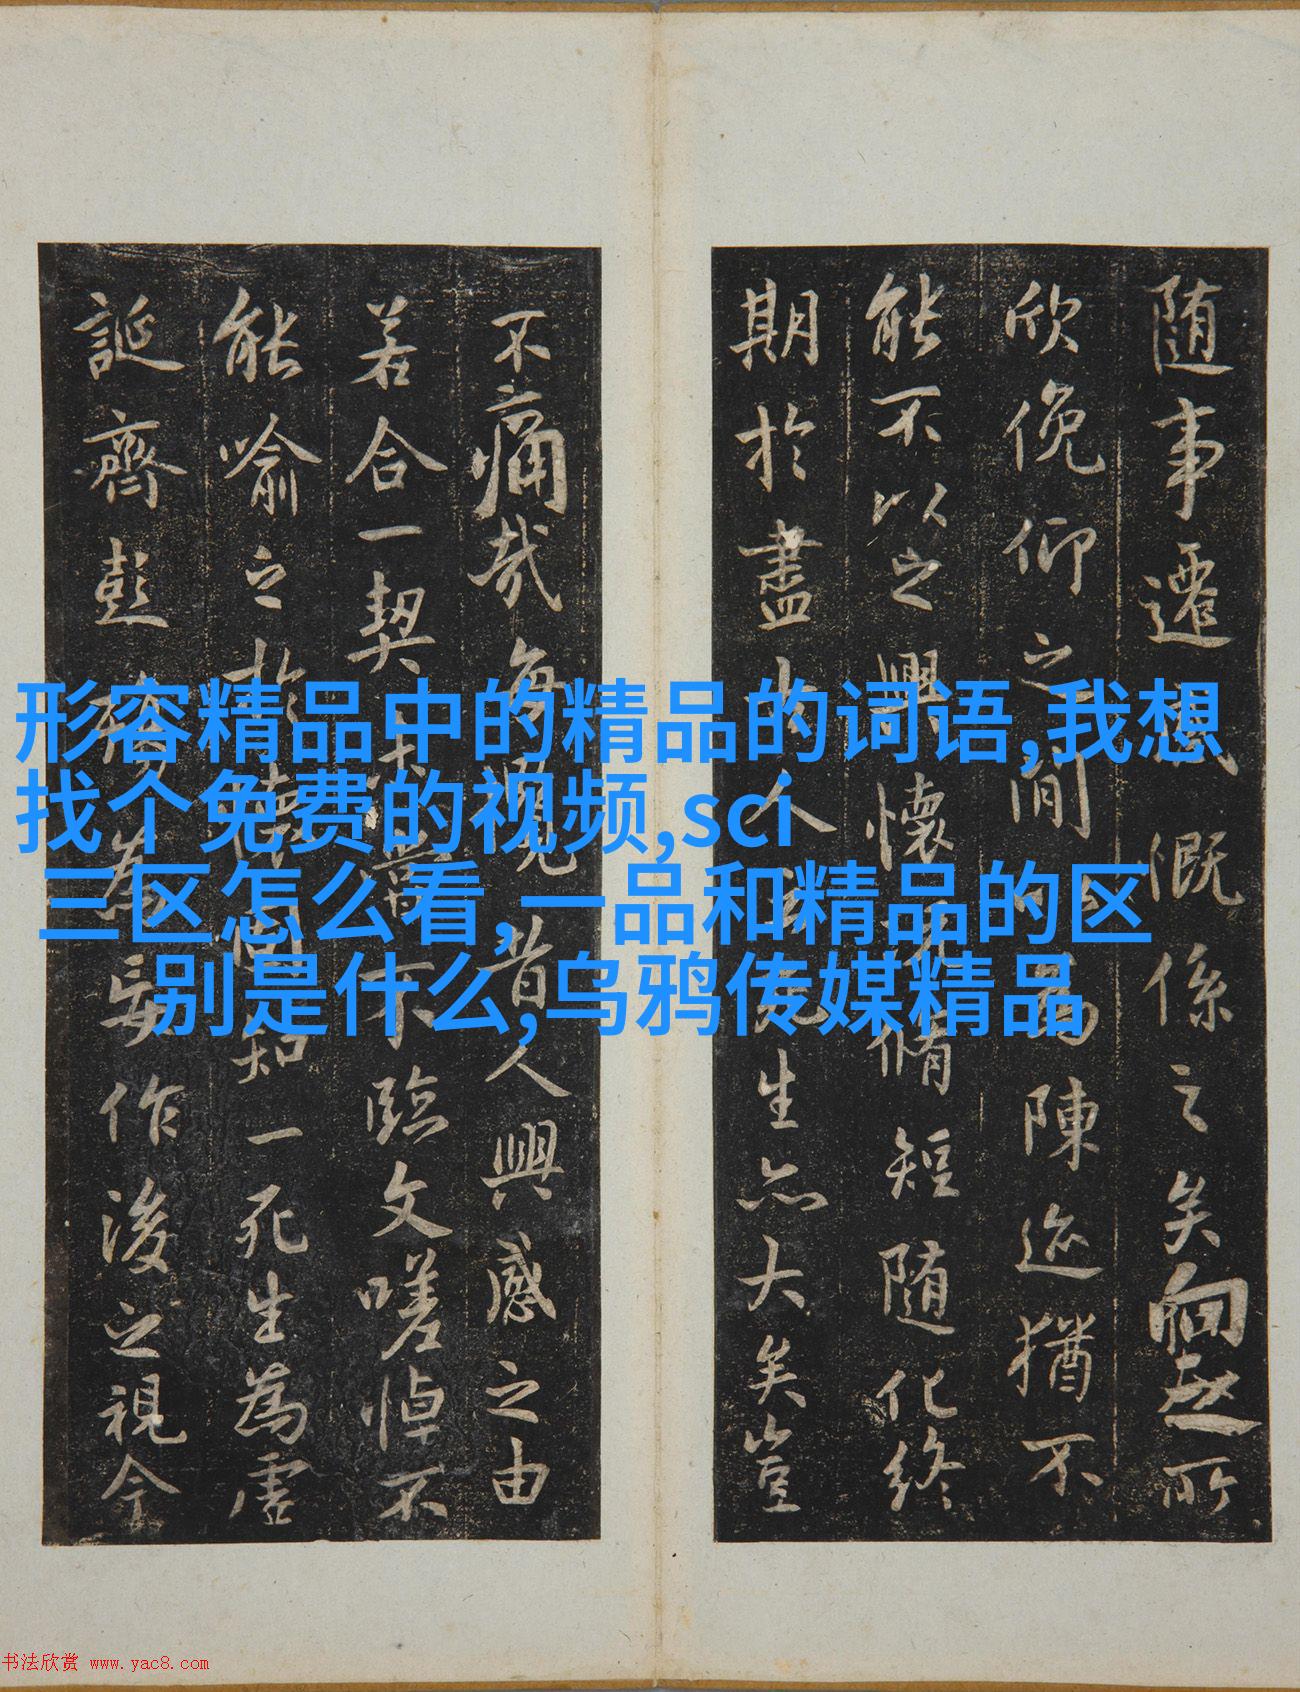 随事遷感慨係之矣向之所
欣俛仰之閒以為陳迹猶不
能不以之興懷況脩短随化終
期於盡古人云死生亦大矣豈
不痛哉每覽昔人興感之由
若合一契未嘗不臨文嗟悼不
能喻之於懷固知一死生為虛
誕齊彭殤為妄作後之視今
形容精品中的精品的词语,我想
找个免费的视频,sci
三区怎么看,一品和精品的区
别是什么,乌鸦传媒精品
书法欣赏 www.yac8.com